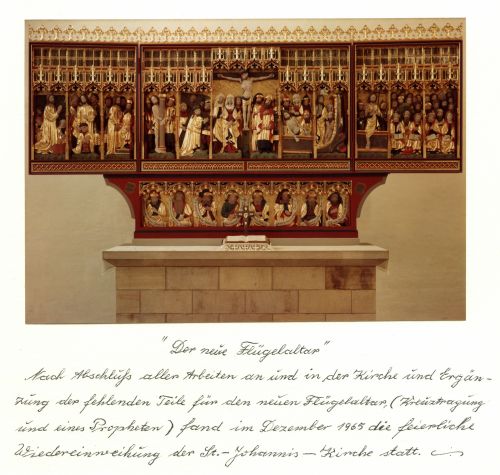 "Der neue Flügelaltar"
Nach Abschluß aller Arbeiten an und in der Kirche und Ergän-
zung der fehlenden Teile für den neuen Flügelaltar, (Kreuztragung
und eines Propheten) fand im Dezember 1965 die feierliche
Wiedereinweihung der St.-Johannis-Kirche statt.